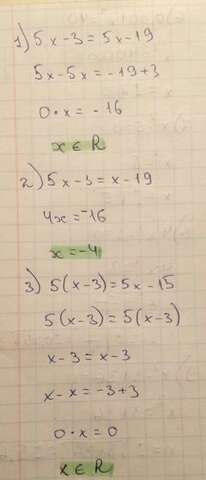 1) 5x-3=5x-19
5x-5x=-19+3
0·x=-16
x∈R
2) 5x-3=x-19
4x=-16
x=-4
3) 5(x-3)=5x-15
5(x-3)=5(x-3)
x-3=x-3
x-x=-3+3
0·x=0
x∈R